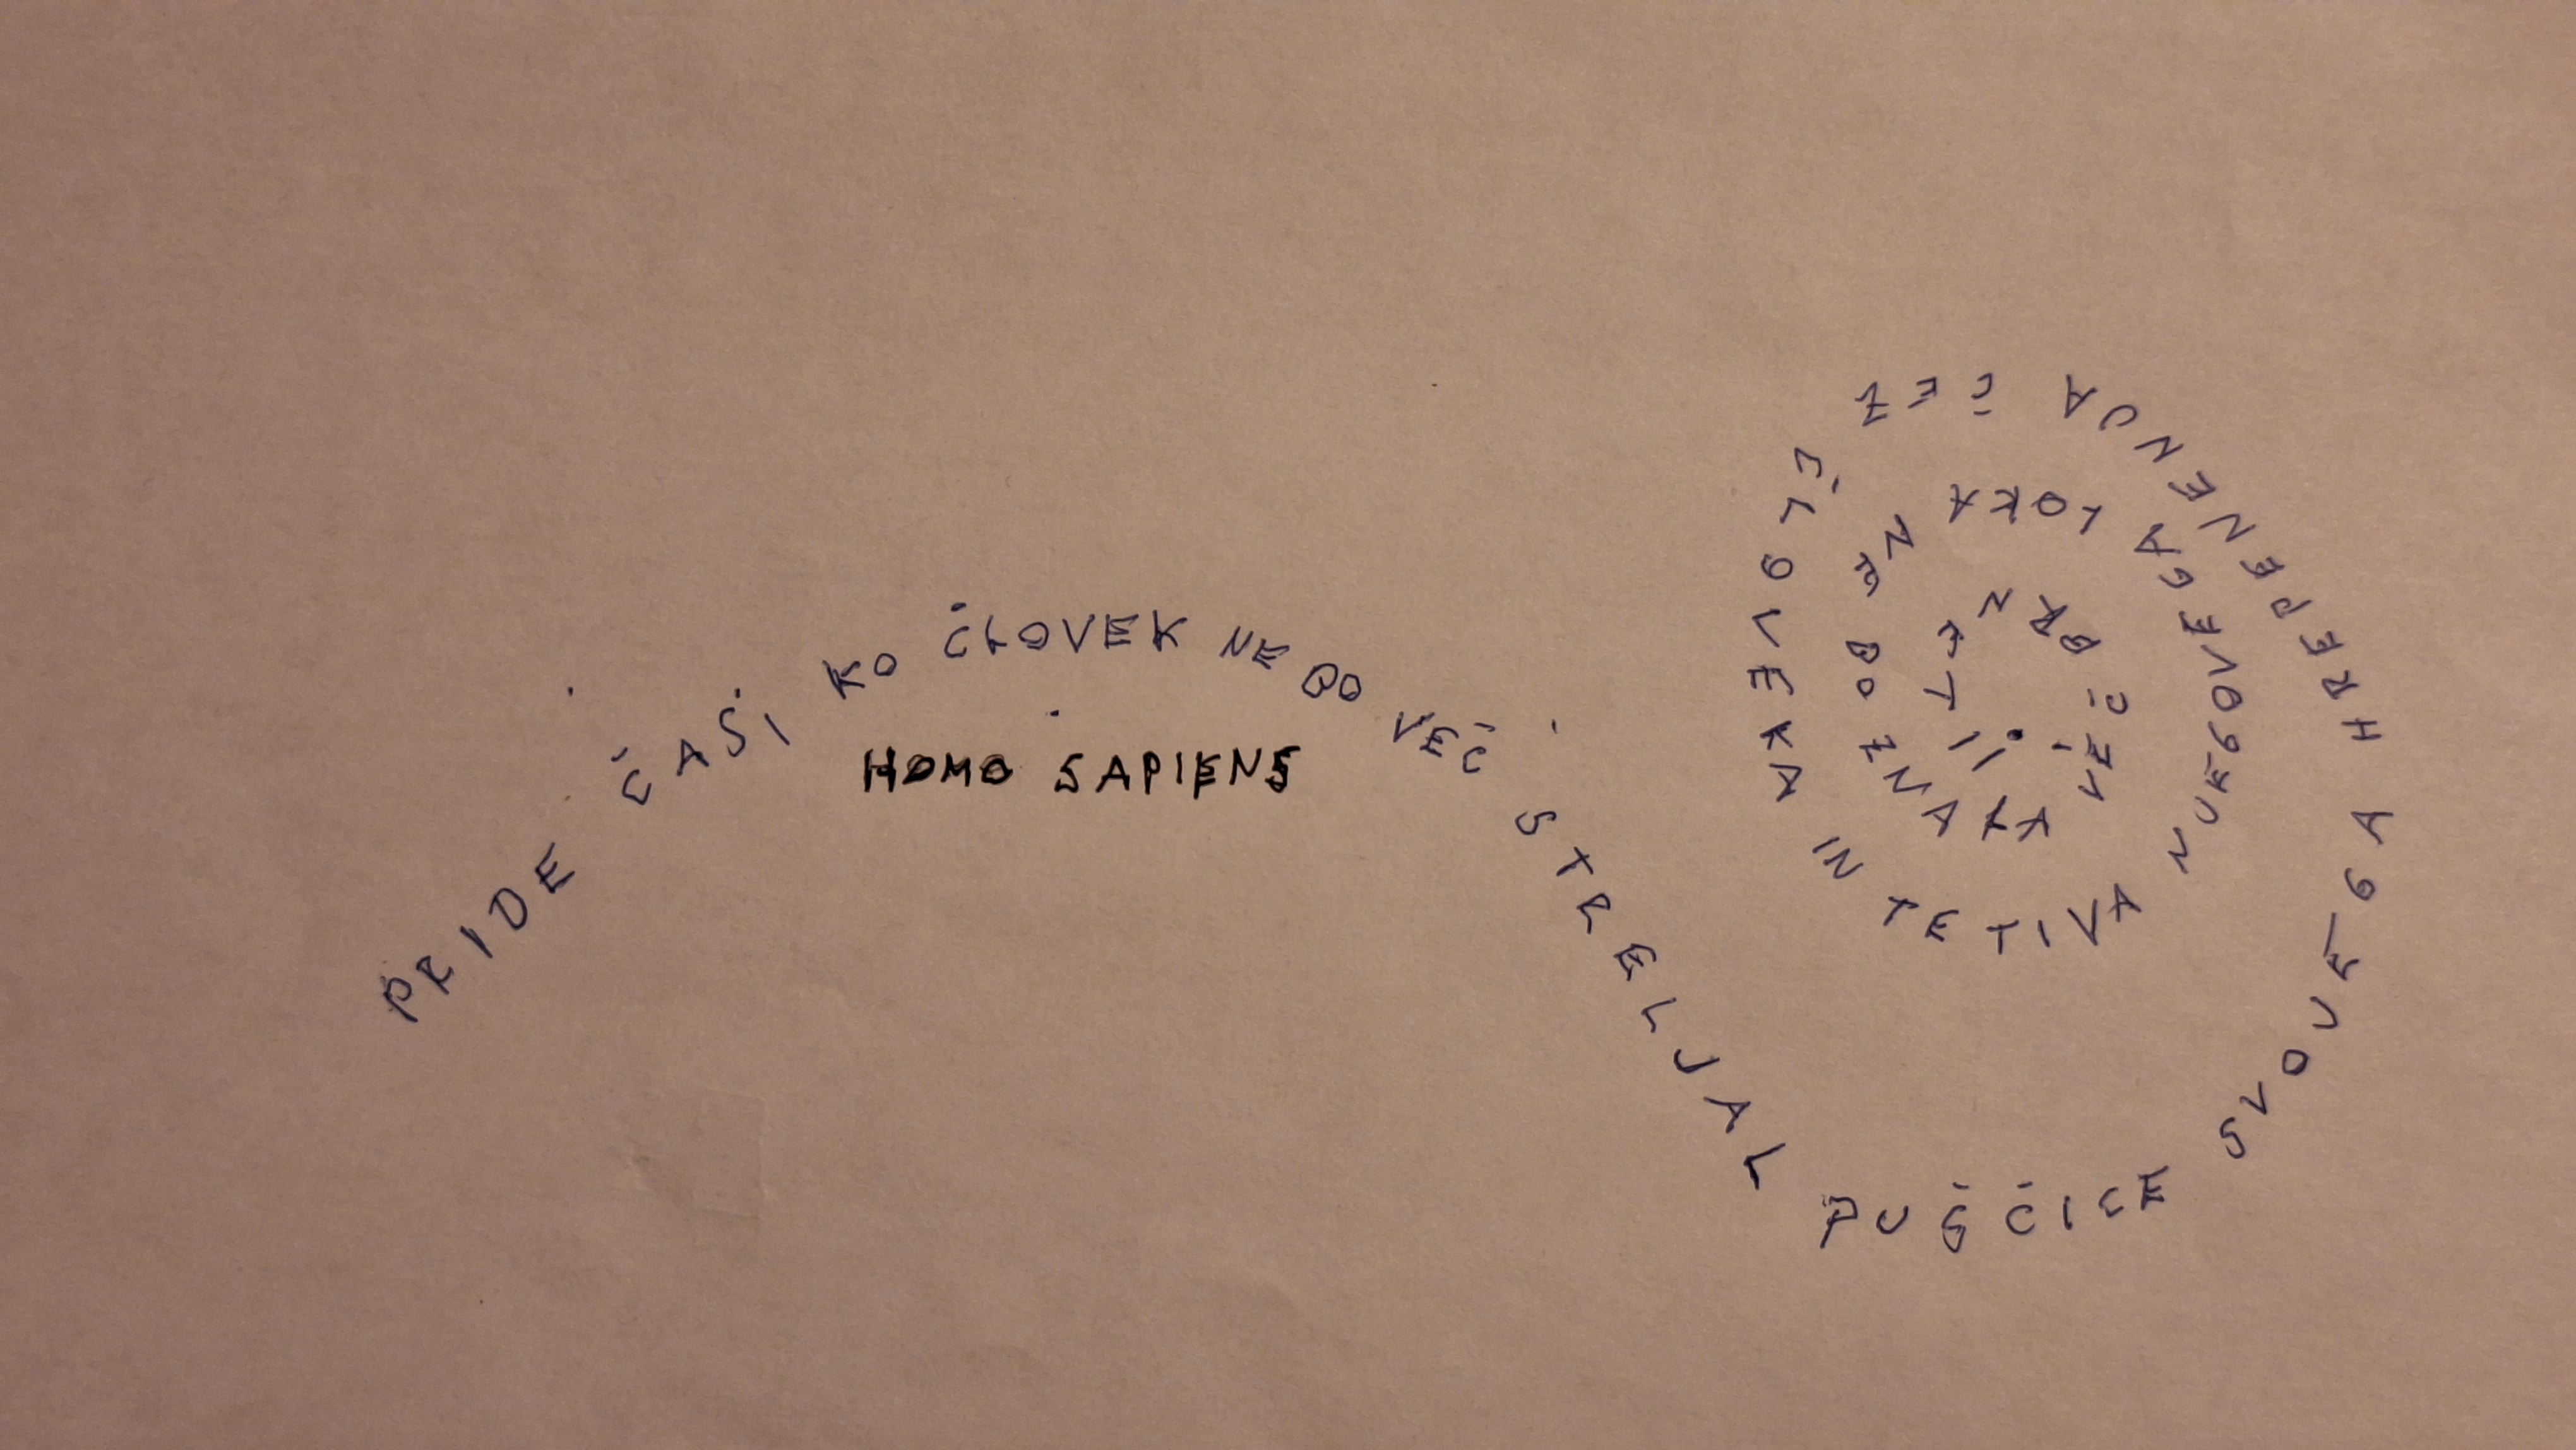 PRIDE ČAS, KO ČLOVEK NE BO VEČ STRELJAL PUŠČICE SVOJEGA HREPENENJA ČEZ ČLOVEKA IN TETIVA NJEGOVEGA LOKA NE BO ZNALA VEČ BRNETI!
HOMO SAPIENS